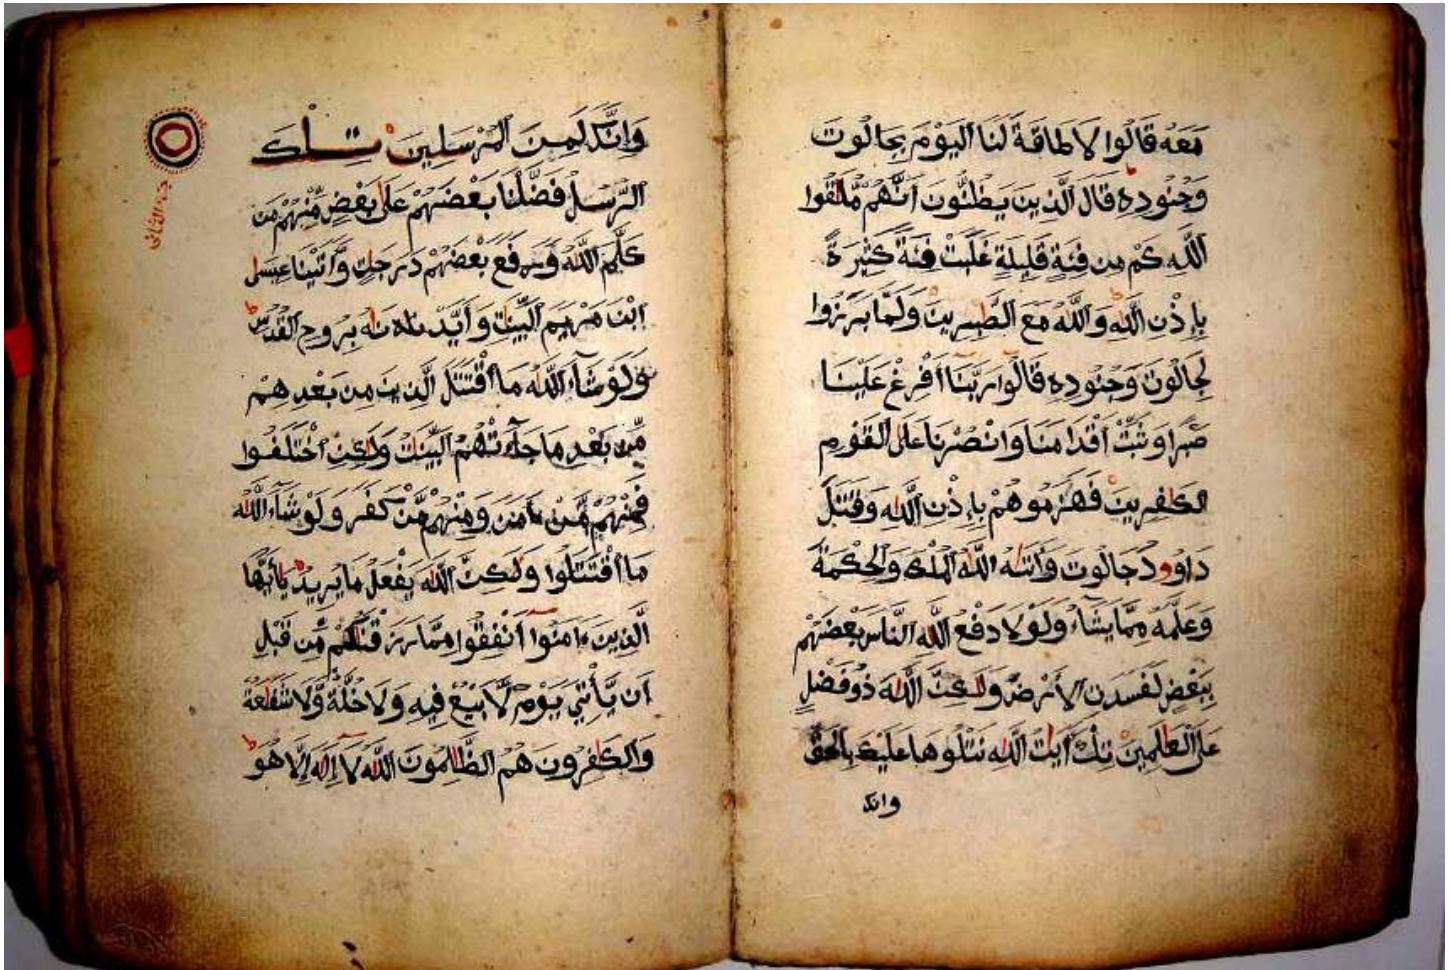 مَعَهُ قَالُوا لَا طَاقَةَ لَنَا الْيَوْمَ بِجَالُوتَ
وَجُنُودِهِ قَالَ الَّذِينَ يَظُنُّونَ أَنَّهُمْ مُّلَٰقُوا
اللَّهِ كَمْ مِن فِئَةٍ قَلِيلَةٍ غَلَبَتْ فِئَةً كَثِيرَةً
بِإِذْنِ اللَّهِ وَاللَّهُ مَعَ الصَّٰبِرِينَ وَلَمَّا بَرَزُوا
لِجَالُوتَ وَجُنُودِهِ قَالُوا رَبَّنَا أَفْرِغْ عَلَيْنَا
صَبْرًا وَثَبِّتْ أَقْدَامَنَا وَانْصُرْنَا عَلَى الْقَوْمِ
الْكَٰفِرِينَ فَهَزَمُوهُمْ بِإِذْنِ اللَّهِ وَقَتَلَ
دَاوُودُ جَالُوتَ وَءَاتَىٰهُ اللَّهُ الْمُلْكَ وَالْحِكْمَةَ
وَعَلَّمَهُ مِمَّا يَشَاءُ وَلَوْلَا دَفْعُ اللَّهِ النَّاسَ بَعْضَهُمْ
بِبَعْضٍ لَفَسَدَتِ الْأَرْضُ وَلَٰكِنَّ اللَّهَ ذُو فَضْلٍ
عَلَى الْعَٰلَمِينَ تِلْكَ ءَايَٰتُ اللَّهِ نَتْلُوهَا عَلَيْكَ بِالْحَقِّ
وانك
وَإِنَّكَ لَمِنَ الْمُرْسَلِينَ تِلْكَ
الرُّسُلُ فَضَّلْنَا بَعْضَهُمْ عَلَىٰ بَعْضٍ مِّنْهُمْ مَّن
كَلَّمَ اللَّهُ وَرَفَعَ بَعْضَهُمْ دَرَجَٰتٍ وَّءَاتَيْنَا عِيسَى
ابْنَ مَرْيَمَ الْبَيِّنَٰتِ وَأَيَّدْنَٰهُ بِرُوحِ الْقُدُسِ
وَلَوْ شَاءَ اللَّهُ مَا اقْتَتَلَ الَّذِينَ مِن بَعْدِهِمْ
مِّن بَعْدِ مَا جَاءَتْهُمُ الْبَيِّنَٰتُ وَلَٰكِنِ اخْتَلَفُوا
فَمِنْهُمْ مَّنْ ءَامَنَ وَمِنْهُمْ مَّنْ كَفَرَ وَلَوْ شَاءَ اللَّهُ
مَا اقْتَتَلُوا وَلَٰكِنَّ اللَّهَ يَفْعَلُ مَا يُرِيدُ يَٰأَيُّهَا
الَّذِينَ ءَامَنُوا أَنْفِقُوا مِمَّا رَزَقْنَٰكُمْ مِّن قَبْلِ
أَن يَّأْتِيَ يَوْمٌ لَّا بَيْعٌ فِيهِ وَلَا خُلَّةٌ وَّلَا شَفَٰعَةٌ
وَالْكَٰفِرُونَ هُمُ الظَّٰلِمُونَ اللَّهُ لَا إِلَٰهَ إِلَّا هُوَ